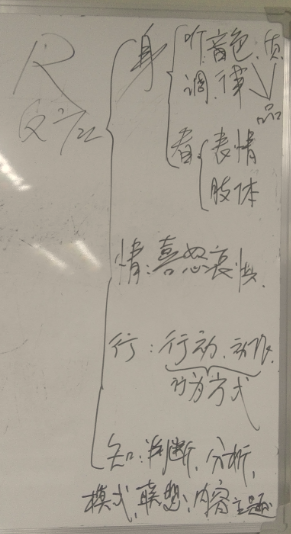 R
反应
身
听 音色、质
调、律
品
看
表情
肢体
情:喜怒哀惧.
行:行动、动作
行为方式
知:判断、分析,
模式、联想、内容主题